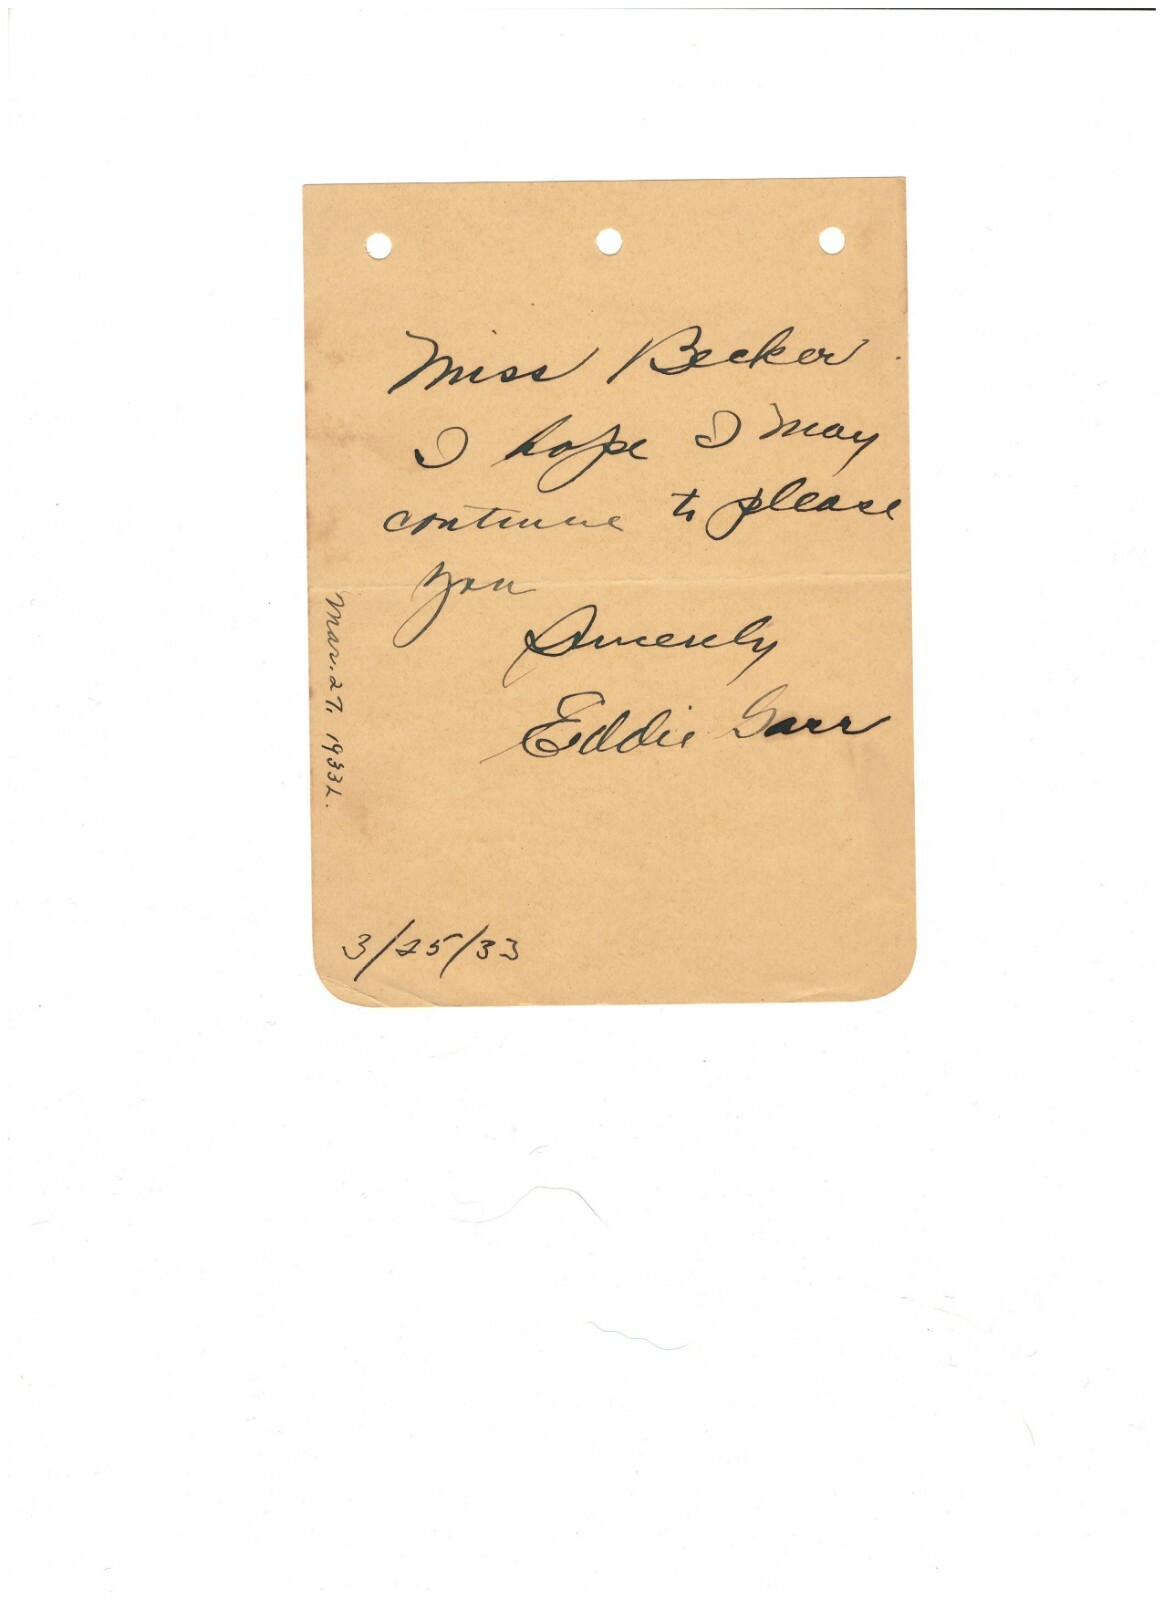 Miss Becker
I hope I may
continue to please
you
Sincerely
Eddie Garr
Mar. 27, 1933
3/25/33